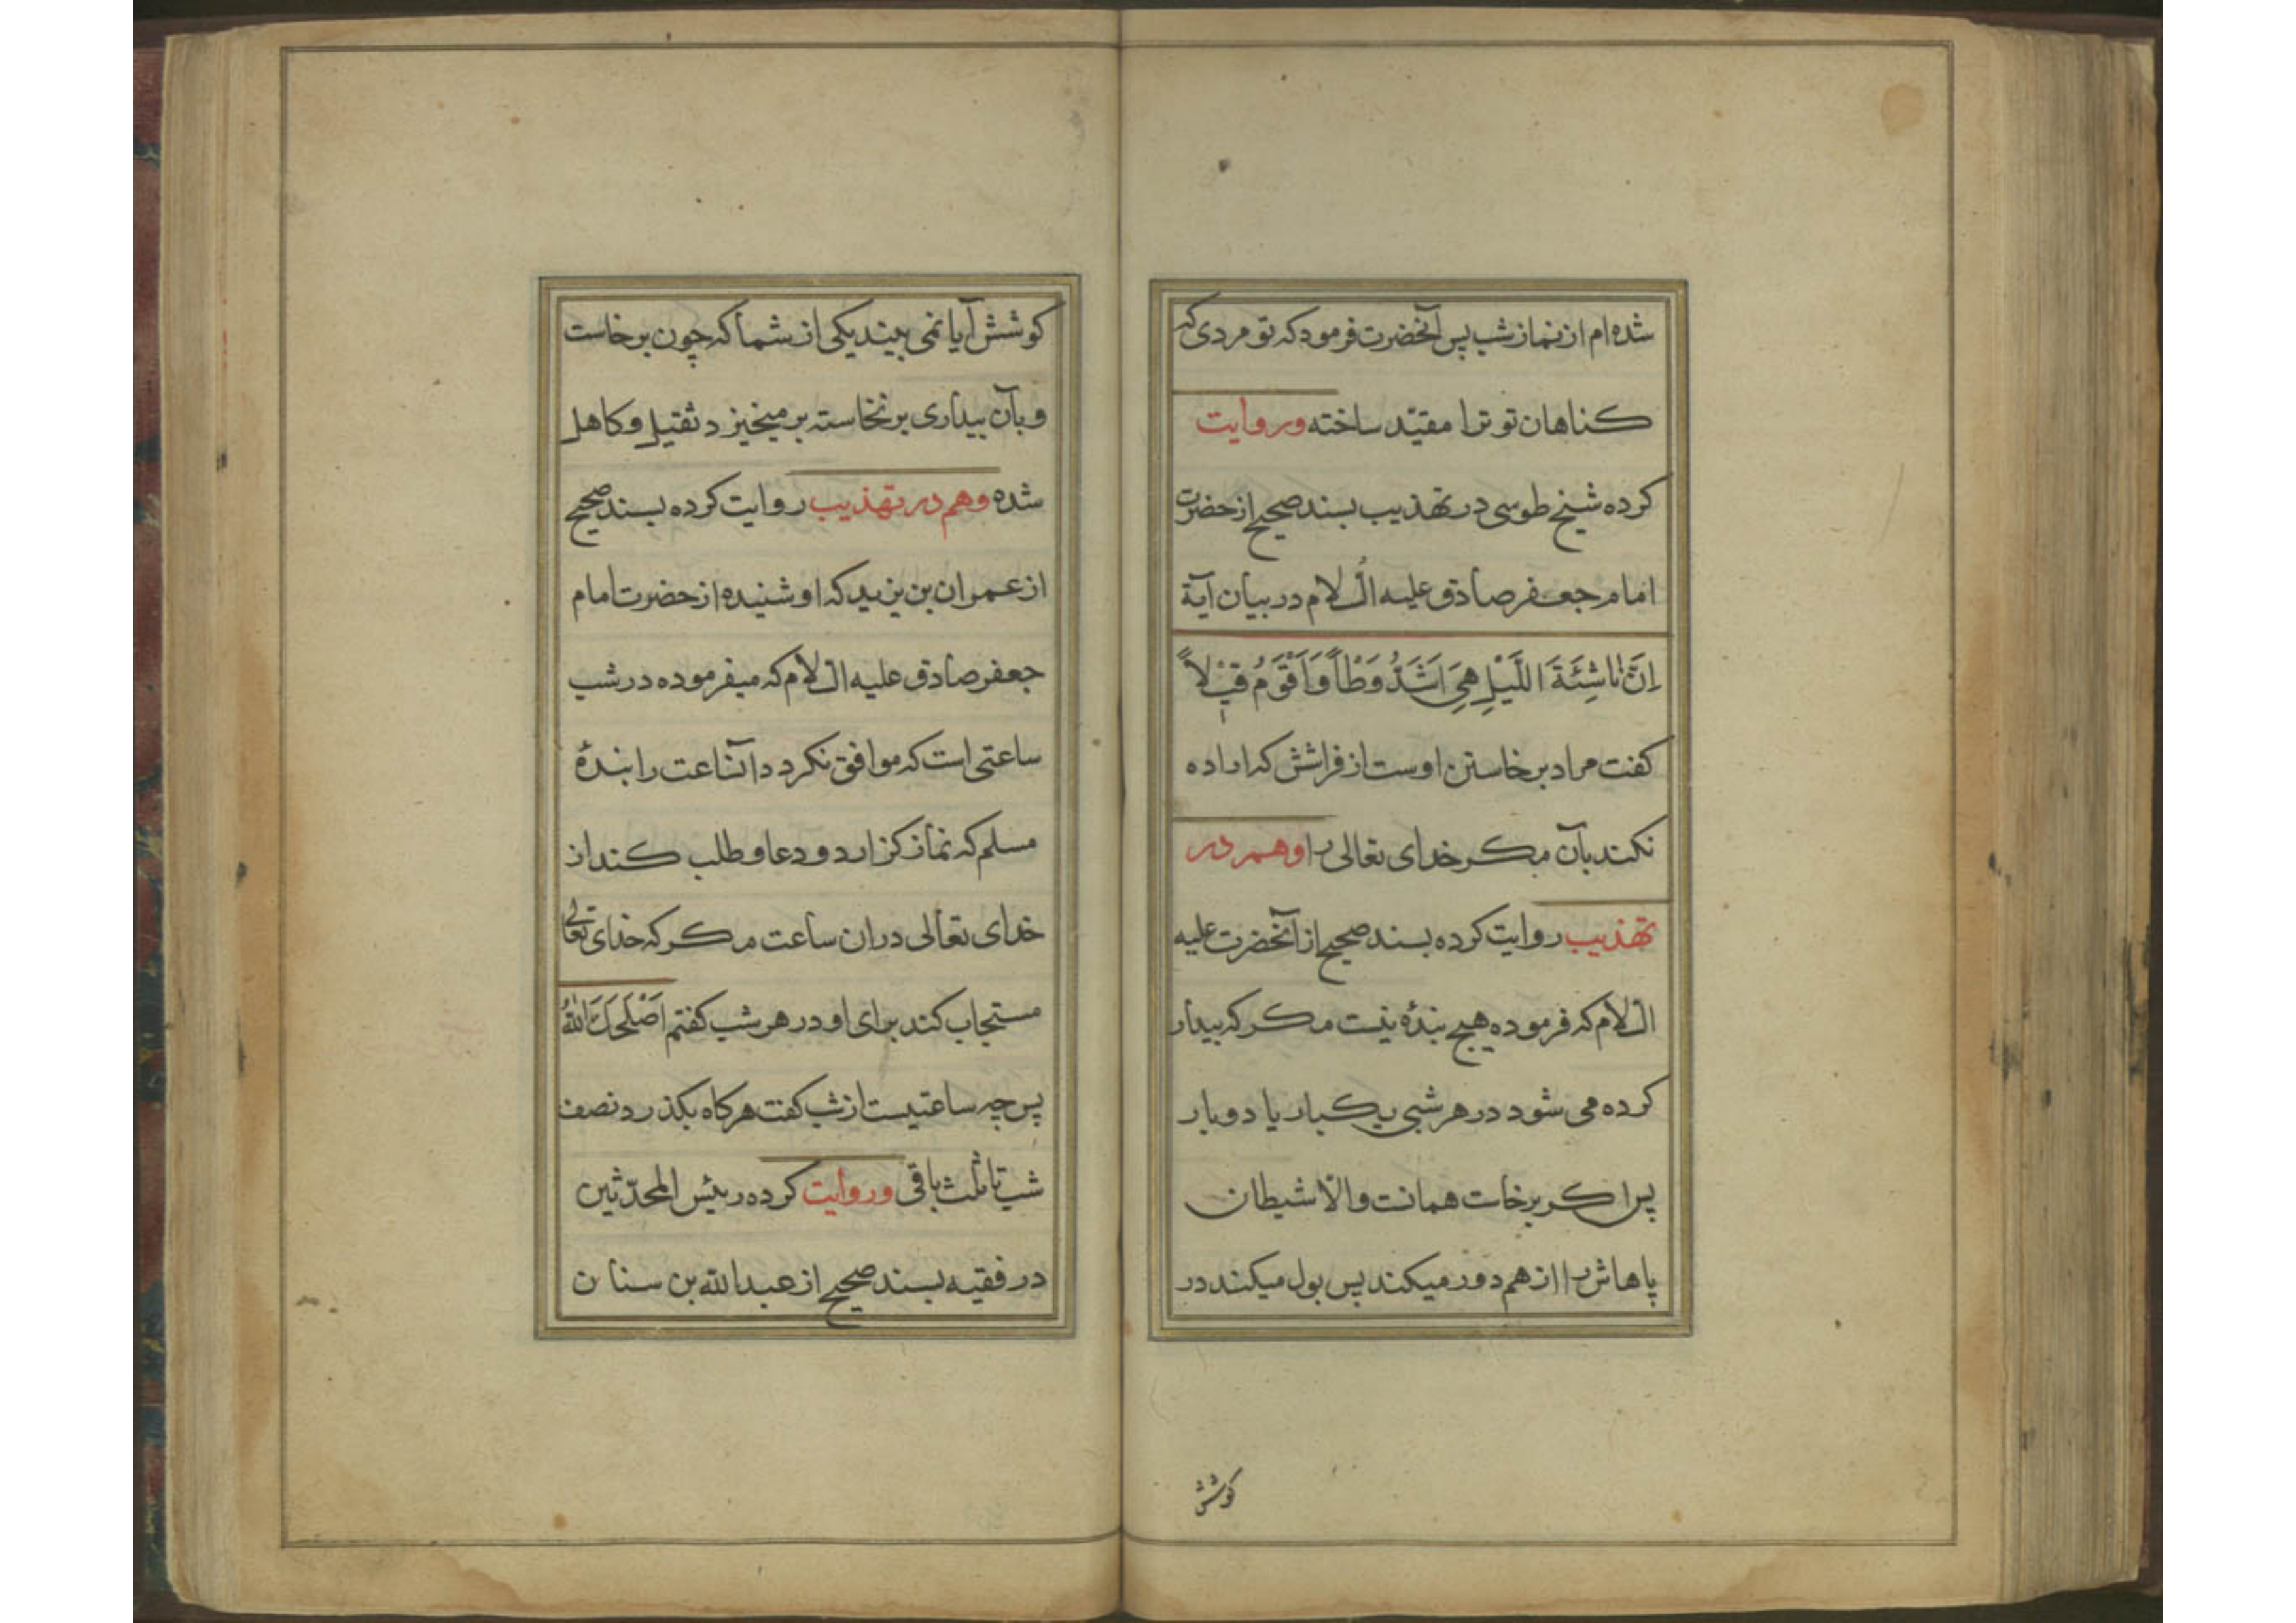 شده‌ام از نماز شب پس آنحضرت فرمود که تو مردی که
کناهان تو ترا مقیّد ساخته و روایت
کرده شیخ طوسی در تهذیب بسند صحیح از حضرت
امام جعفر صادق علیه السلام در بیان آیهٔ
اِنَّ نَاشِئَةَ اللَّيْلِ هِيَ اَشَدُّ وَطْأً وَاَقْوَمُ قِيْلاً
کفت مراد برخاستن اوست از فراشش که اراده
نکند بآن مکر خدای تعالی را و هم در
تهذیب روایت کرده بسند صحیح از آنحضرت علیه
السلام که فرموده هیچ بندهٔ نیست مکر که بیدار
کرده می شود در هر شبی یکبار یا دو بار
پس اکر برخاست همانست والّا شیطان
پاهاش را از هم دور میکند پس بول میکند در
کوشش
کوشش آیا نمی بیند یکی از شما که چون برخاست
و بآن بیداری برنخاسته بر میخیزد ثقیل و کاهل
شده و هم در تهذیب روایت کرده بسند صحیح
از عمران بن یزید که او شنیده از حضرت امام
جعفر صادق علیه السلام که میفرموده در شب
ساعتی است که موافق نکردد آنساعت را بندهٔ
مسلم که نماز کزارد و دعا و طلب کند از
خدای تعالی دران ساعت مکر که خدای تعالی
مستجاب کند برای او در هر شب کفتم اَصْلَحَكَ اللّٰهُ
پس چه ساعتیست از شب کفت هرکاه بکذرد نصف
شب تا ثلث باقی و روایت کرده رئیس المحدّثین
در فقیه بسند صحیح از عبدالله بن سنان